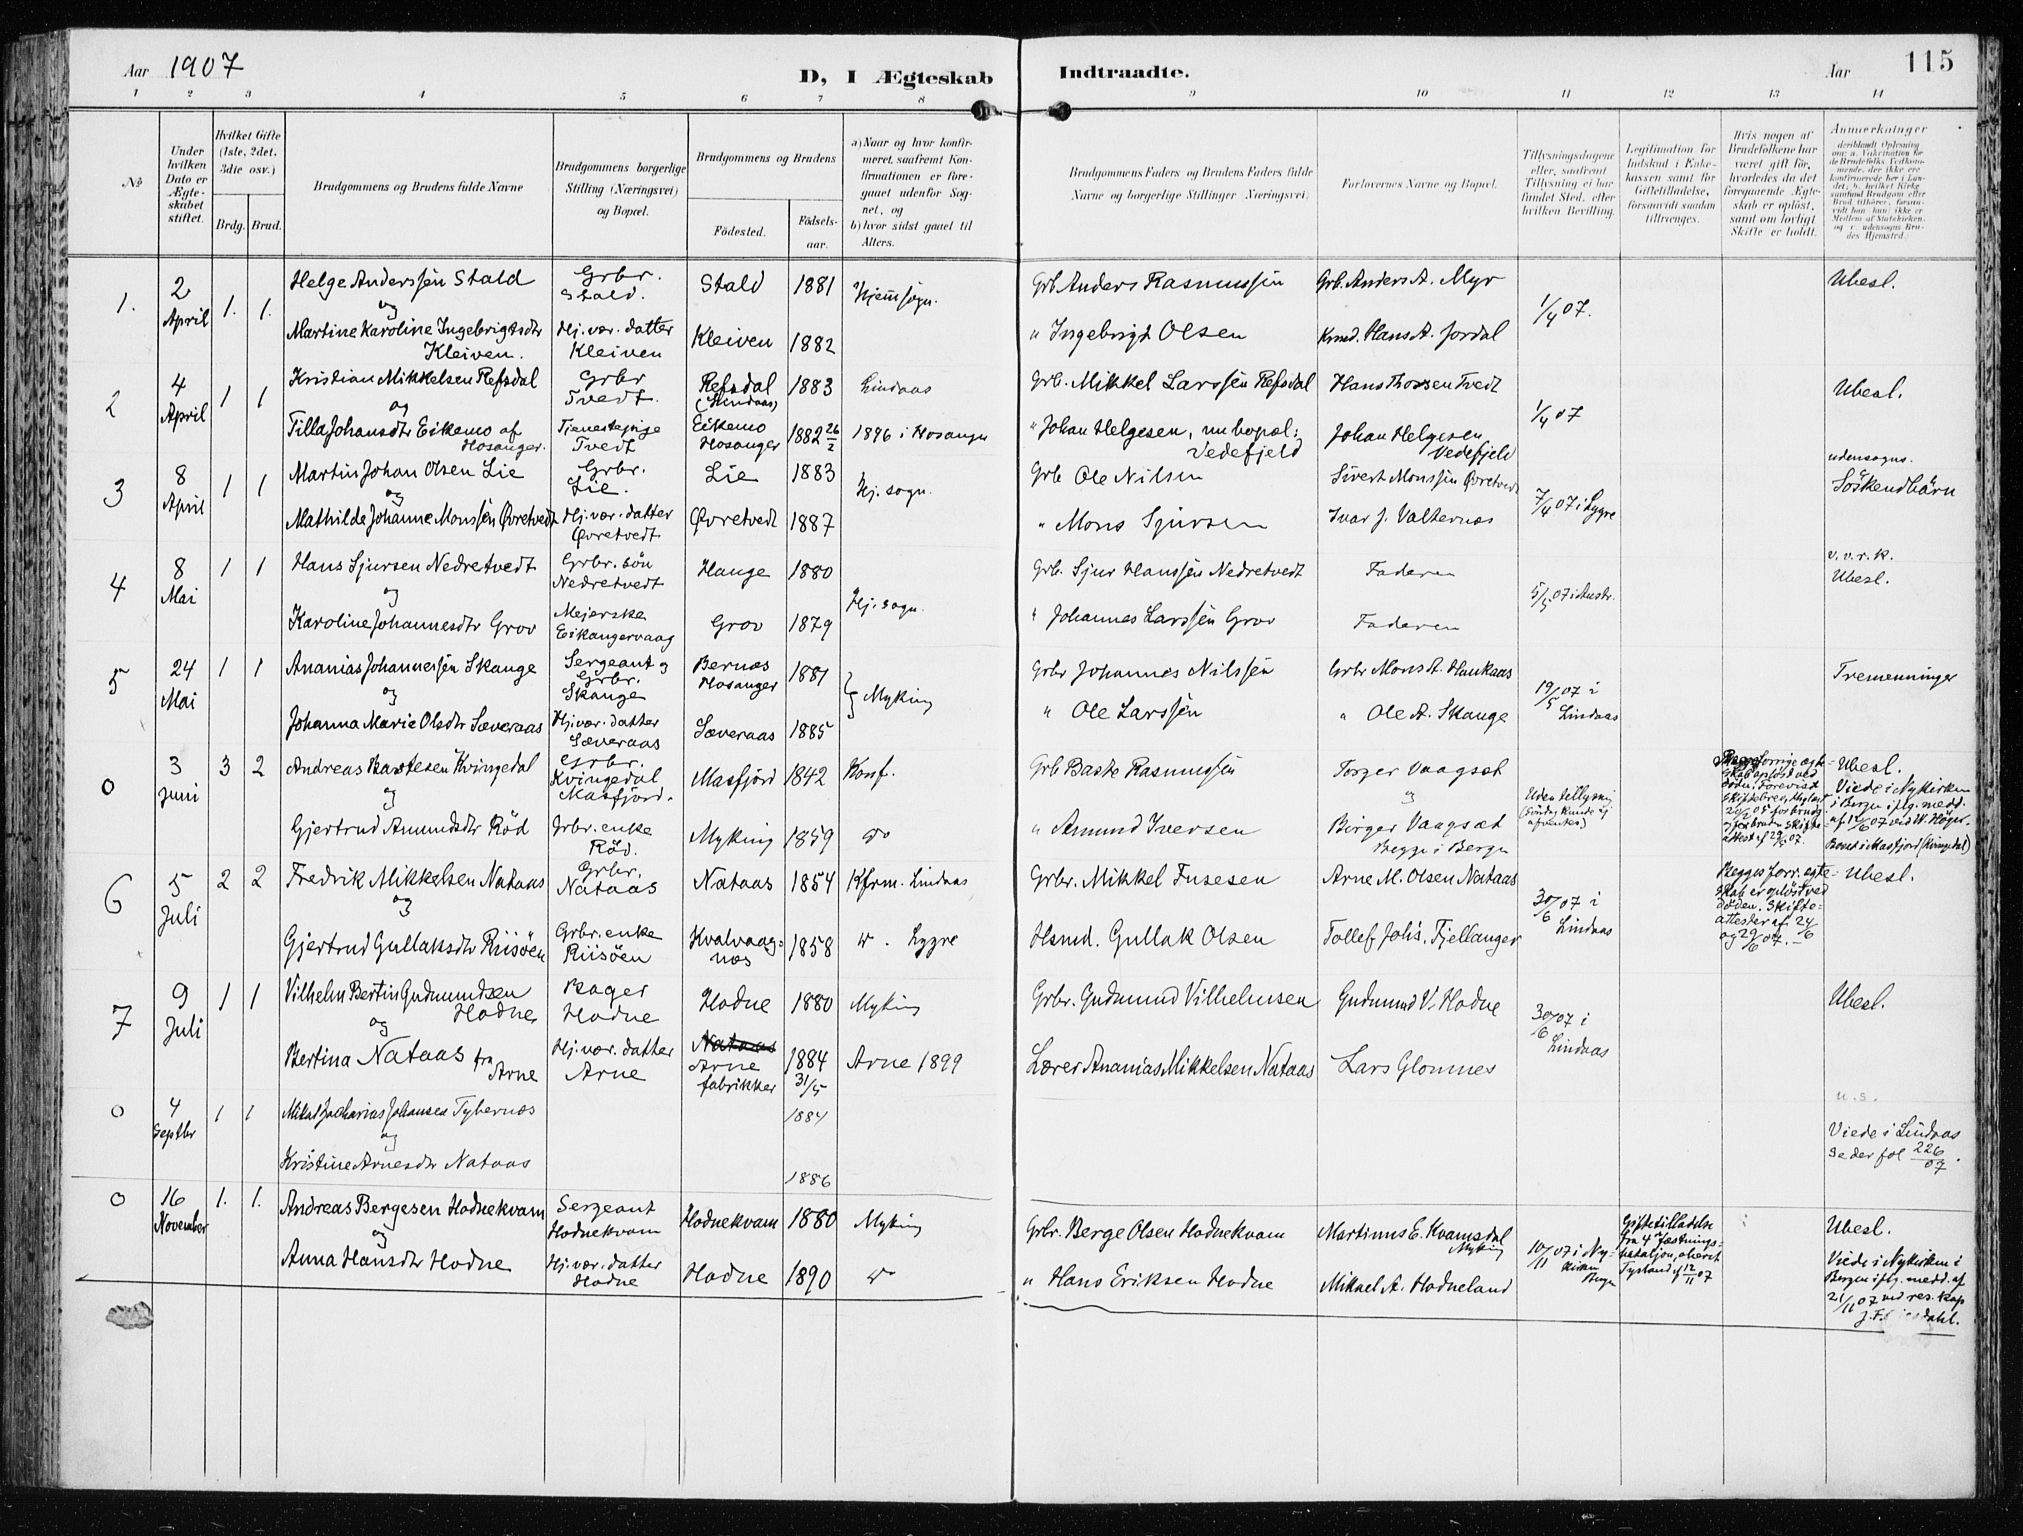 Aar 1907
D, I Ægteskab Indtraadte.
Aar 115
1 2 3 4 5 6 7 8 9 10 11 12 13 14
№
Under hvilken Dato er Ægteskabet stiftet.
Hvilket Gifte (1ste, 2det, 3die osv.)
Brdg. Brud.
Brudgommens og Brudens fulde Navne
Brudgommens borgerlige Stilling (Næringsvei) og Bopæl.
Brudgommens og Brudens
Fødested.
Fødsels-aar.
a) Naar og hvor konfirmeret, saafremt Konfirmationen er foregaaet udenfor Sognet, og
b) hvor sidst gaaet til Alters.
Brudgommens Faders og Brudens Faders fulde Navne og borgerlige Stillinger (Næringsvei)
Forlovernes Navne og Bopæl.
Tillysningsdagene eller, saafremt Tillysning ei har fundet Sted, efter hvilken Bevilling.
Legitimation for Indskud i Enkekassen samt for Giftetilladelse, forsaavidt saadan tiltrænges.
Hvis nogen af Brudefolkene har været gift før, hvorledes da det foregaaende Ægteskab er opløst, samt om lovligt Skifte er holdt.
Anmærkninger
1. 2 April 1. 1. Helge Anderssen Stald Grbr. Stald. Stald 1881 Hjemsogn. Grb Anders Rasmussen Grb. Anders A. Myr 1/4 07. Ubesl.
og
Martine Karoline Ingebrigtsdtr Kleiven. Hj.vær. datter Kleiven Kleiven 1882 " Ingebrigt Olsen Krmd. Hans A. Jordal
2 4 April 1 1 Kristian Mikkelsen Refsdal Grbr Tvedt. Refsdal (Lindaas) 1883 Lindaas Grb. Mikkel Larssen Refsdal Hans Thossen Tvedt 1/4 07 Ubesl.
og
Tilla Johansdtr Eikemo af Hosanger. Tjenestepige Tvedt Eikemo Hosanger 1882 26/2 1896 i Hosanger " Johan Helgesen, nu bopæl: Vedefjeld Johan Helgesen Vedefjeld
3 8 April 1 1 Martin Johan Olsen Lie Grbr. Lie. Lie 1883 Hj. sogn. Grb Ole Nilsen Sivert Monssen Øvretvedt 7/4 07 i Lygre udensogns. Söskendbärn
og
Mathilde Johanne Monssen Øvretvedt Hj. vær. datter Øvretvedt Øvretvedt 1887 " Mons Sjursen Ivar J. Valternæs
4 8 Mai 1 1 Hans Sjursen Nedretvedt Grbr. sön Nedretvedt Hauge 1880 Hj. sogn. Grb. Sjur Hanssen Nedretvedt Faderen 5/5 07 i Austr. v. v. r. k. Ubesl.
og
Karoline Johannesdtr Grov Mejerske Eikangervaag Grov 1879 " Johannes Larssen Grov Faderen
5 24 Mai 1 1 Ananias Johannessen Skauge Sergeant og Grbr. Skauge Bernæs Hosanger 1881 Myking Grbr Johannes Nilssen Grbr Mons A. Haukaas 19/5 07 i Lindaas Tremenninger
og
Johanna Marie Olsdtr Sæveraas Hj.vær. datter Sæveraas Sæveraas 1885 " Ole Larssen " Ole A. Skauge
0 3 Juni 3 2 Andreas Bastesen Kvingedal Grbr. Kvingedal Masfjord. Masfjord 1842 Konf. Grb Baste Rasmussen Torger Vaagsæt Uden tillysning Ubesl. Viede i Nykirken i Bergen iflg. medd. af 12/6 07 ved W. Höger. Bosat i Masfjord (Kvingedal)
og
Gjertrud Amundsdtr Röd Grbr. enke Röd. Myking 1859 do " Amund Iversen Börger Vaagsæt Begge i Bergen
6 5 Juli 2 2 Fredrik Mikkelsen Nataas Grbr. Nataas Nataas 1854 Kfrm. Lindaas Grbr. Mikkel Fusesen Arne M. Olsen Nataas 30/6 07 i Lindaas Begges forr. egteskab er oplöst ved döden. Skifteattester af 24/6 og 29/6 07. Ubesl.
og
Gjertrud Gullaksdtr Riisöen Grbr. enke Riisöen Kvalvaagnæs 1858 do. Lygre Hsmd. Gullak Olsen Tollef Johs. Fjellanger
7 9 Juli 1 1 Vilhelm Bertin Gudmundsen Hodne Bager Hodne Hodne 1880 Myking Grbr. Gudmund Vilhelmsen Gudmund V. Hodne 30/6 07 i Lindaas Ubesl.
og
Bertina Nataas fra Arne Hj. vær. datter Arne Nataas Arne fabrikker 1884 31/5 Arne 1899 Lærer Ananias Mikkelsen Nataas Lars Glomnes
0 4 Septbr 1 1 Mikal Zacharias Johansen Tybernæs 1884 u. s. Viede i Lindaas se der fol 226/07.
og
Kristine Arnesdtr Nataas 1886
0 16 November 1. 1. Andreas Bergesen Hodnekvam Sergeant Hodnekvam Hodnekvam 1880 Myking Grbr. Berge Olsen Hodnekvam Martinus E. Kvamsdal Myking 10/11 07 i Nykirken Bergen Giftetilladelse fra 4de Fæstningsbataljon, oberst Tystand af 12/11 07 Ubesl. Viede i Nykirken i Bergen iflg. medd. af 21/11 07 ved res. kap
og
Anna Hansdtr Hodne Hj.vær. datter Hodne Hodne 1890 do " Hans Eriksen Hodne Mikael A. Hodneland